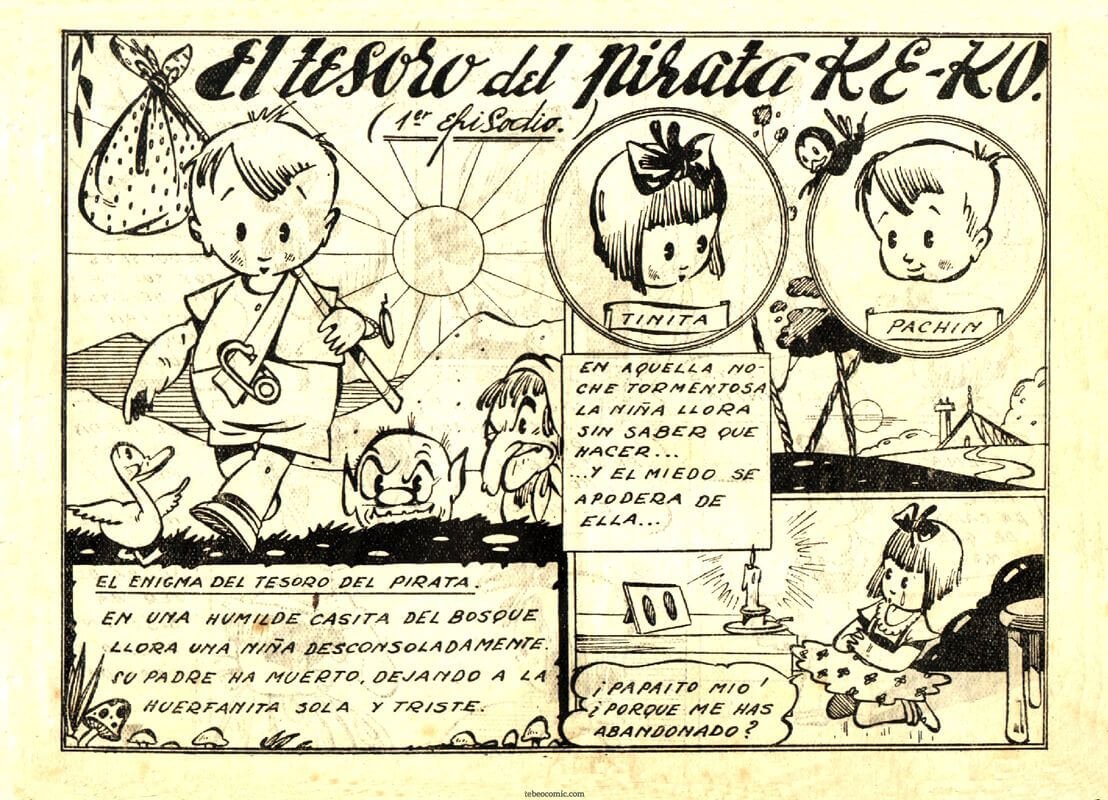 El tesoro del pirata KE-KO.
(1er Episodio.)
TINITA
PACHIN
EL ENIGMA DEL TESORO DEL PIRATA.
EN UNA HUMILDE CASITA DEL BOSQUE
LLORA UNA NIÑA DESCONSOLADAMENTE.
SU PADRE HA MUERTO, DEJANDO A LA
HUERFANITA SOLA Y TRISTE.
EN AQUELLA NO-
CHE TORMENTOSA
LA NIÑA LLORA
SIN SABER QUE
HACER...
...Y EL MIEDO SE
APODERA DE
ELLA...
¡PAPAITO MIO!
¿PORQUE ME HAS
ABANDONADO?
tebeocomic.com